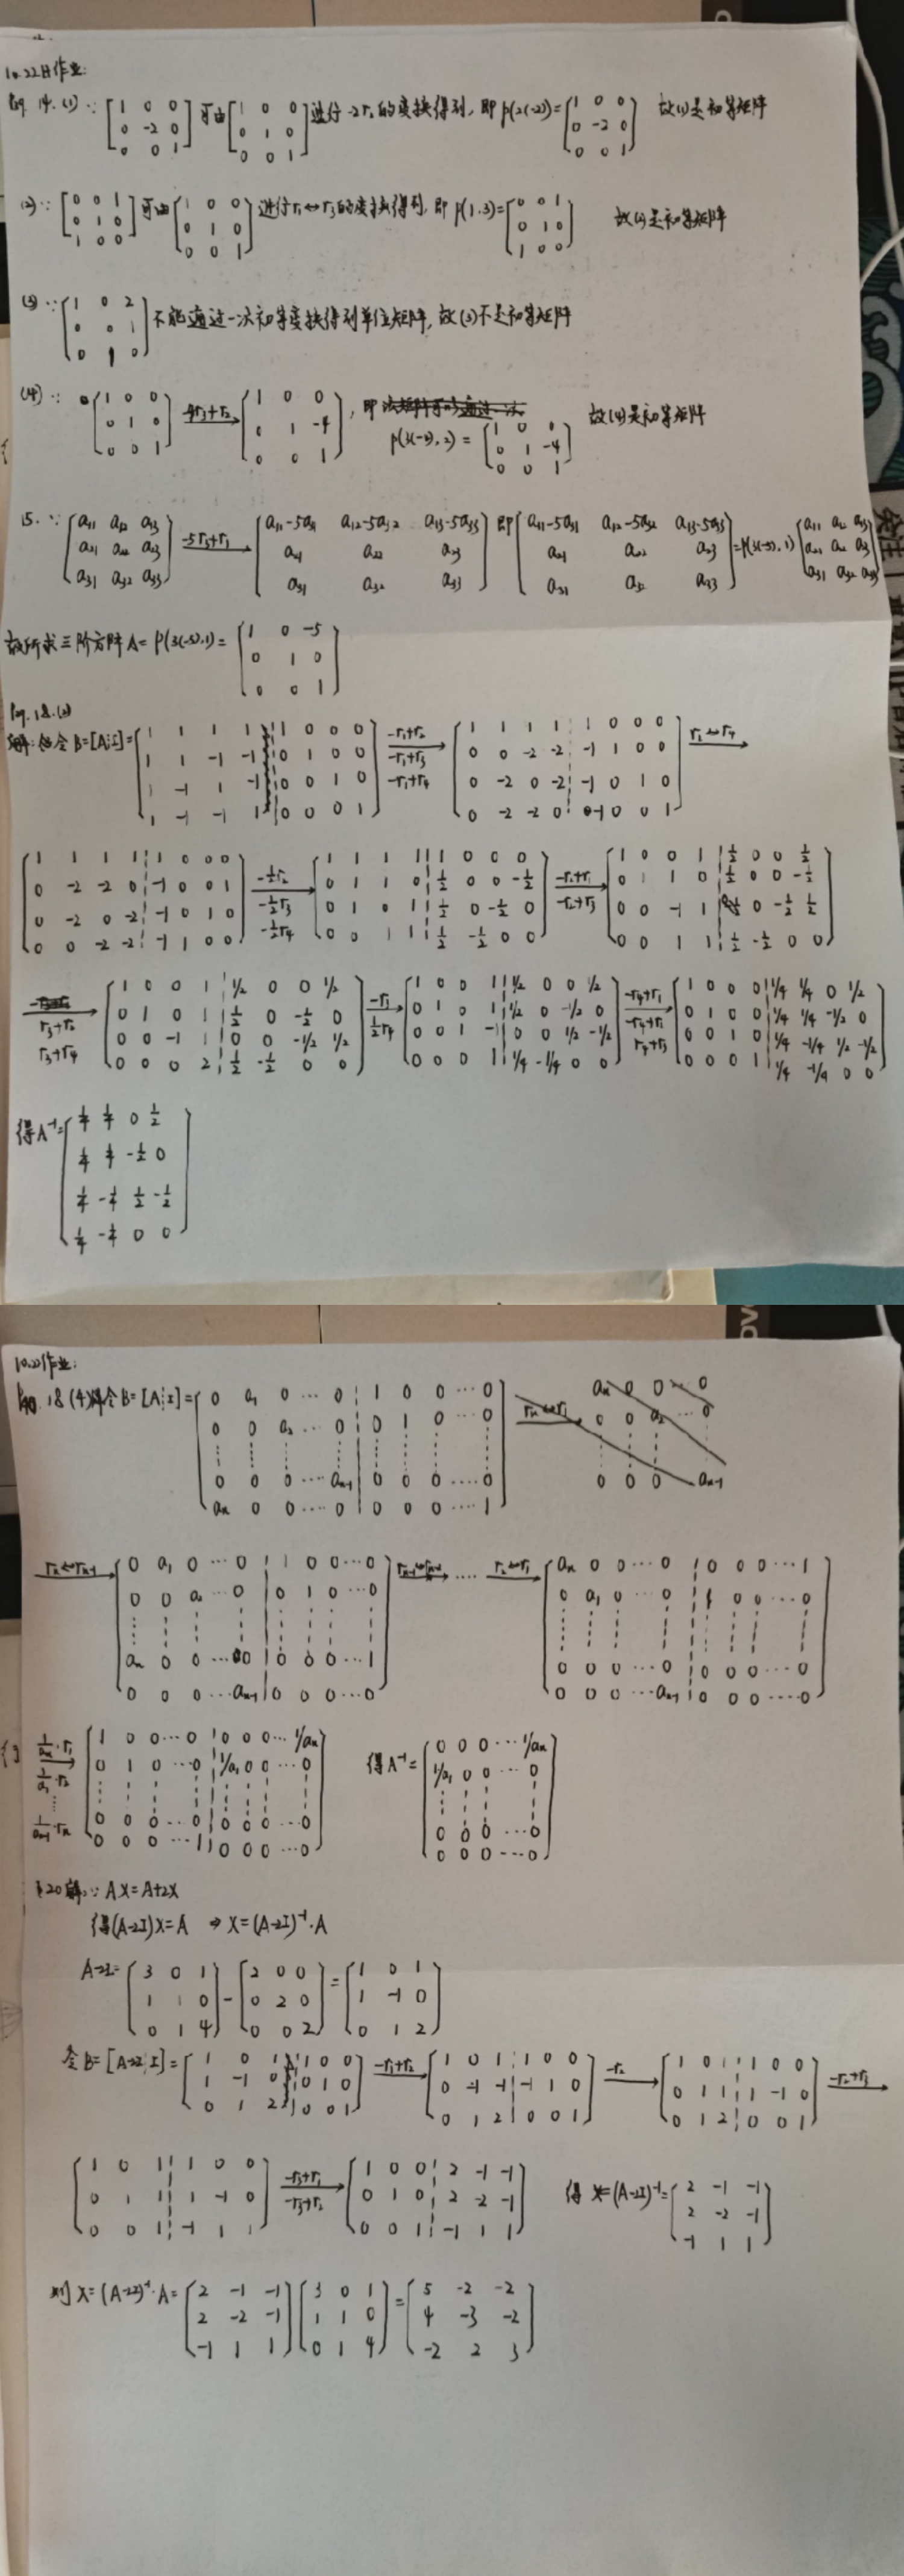 10.22日作业:
P89. 14. (1) ∵ [1 0 0; 0 -2 0; 0 0 1] 可由 [1 0 0; 0 1 0; 0 0 1] 进行 -2r₂ 的变换得到, 即 P(2(-2)) = [1 0 0; 0 -2 0; 0 0 1] 故(1)是初等矩阵
(2) ∵ [0 0 1; 0 1 0; 1 0 0] 可由 [1 0 0; 0 1 0; 0 0 1] 进行 r₁↔r₃ 的变换得到, 即 P(1,3) = [0 0 1; 0 1 0; 1 0 0] 故(2)是初等矩阵
(3) ∵ [1 0 2; 0 0 1; 0 1 0] 不能通过一次初等变换得到单位矩阵, 故(3)不是初等矩阵
(4) ∵ [1 0 0; 0 1 0; 0 0 1] -4r₃+r₂→ [1 0 0; 0 1 -4; 0 0 1], 即
= [1 0 0; 0 1 -4; 0 0 1] 故(4)是初等矩阵
15. ∵ [a₁₁ a₁₂ a₁₃; a₂₁ a₂₂ a₂₃; a₃₁ a₃₂ a₃₃] -5r₃+r₁→ [a₁₁-5a₃₁ a₁₂-5a₃₂ a₁₃-5a₃₃; a₂₁ a₂₂ a₂₃; a₃₁ a₃₂ a₃₃] 即 [a₁₁-5a₃₁ a₁₂-5a₃₂ a₁₃-5a₃₃; a₂₁ a₂₂ a₂₃; a₃₁ a₃₂ a₃₃] = P(3(-5),1) [a₁₁ a₁₂ a₁₃; a₂₁ a₂₂ a₂₃; a₃₁ a₃₂ a₃₃]
故所求三阶方阵 A = P(3(-5),1) = [1 0 -5; 0 1 0; 0 0 1]
18.(2)
解: 令 B = [A┆I] = [1 1 1 1 ┆ 1 0 0 0; 1 1 -1 -1 ┆ 0 1 0 0; 1 -1 1 -1 ┆ 0 0 1 0; 1 -1 -1 1 ┆ 0 0 0 1] -r₁+r₂, -r₁+r₃, -r₁+r₄→ [1 1 1 1 ┆ 1 0 0 0; 0 0 -2 -2 ┆ -1 1 0 0; 0 -2 0 -2 ┆ -1 0 1 0; 0 -2 -2 0 ┆ -1 0 0 1] r₂↔r₄→
[1 1 1 1 ┆ 1 0 0 0; 0 -2 -2 0 ┆ -1 0 0 1; 0 -2 0 -2 ┆ -1 0 1 0; 0 0 -2 -2 ┆ -1 1 0 0] -½r₂, -½r₃, -½r₄→ [1 1 1 1 ┆ 1 0 0 0; 0 1 1 0 ┆ ½ 0 0 -½; 0 1 0 1 ┆ ½ 0 -½ 0; 0 0 1 1 ┆ ½ -½ 0 0] -r₂+r₁, -r₂+r₃→ [1 0 0 1 ┆ ½ 0 0 ½; 0 1 1 0 ┆ ½ 0 0 -½; 0 0 -1 1 ┆ 0 0 -½ ½; 0 0 1 1 ┆ ½ -½ 0 0]
r₃+r₂, r₃+r₄→ [1 0 0 1 ┆ 1/2 0 0 1/2; 0 1 0 1 ┆ ½ 0 -½ 0; 0 0 -1 1 ┆ 0 0 -1/2 1/2; 0 0 0 2 ┆ ½ -½ 0 0] -r₃, ½r₄→ [1 0 0 1 ┆ 1/2 0 0 1/2; 0 1 0 1 ┆ 1/2 0 -1/2 0; 0 0 1 -1 ┆ 0 0 1/2 -1/2; 0 0 0 1 ┆ 1/4 -1/4 0 0] -r₄+r₁, -r₄+r₂, r₄+r₃→ [1 0 0 0 ┆ 1/4 1/4 0 1/2; 0 1 0 0 ┆ 1/4 1/4 -1/2 0; 0 0 1 0 ┆ 1/4 -1/4 1/2 -1/2; 0 0 0 1 ┆ 1/4 -1/4 0 0]
得 A⁻¹ = [¼ ¼ 0 ½; ¼ ¼ -½ 0; ¼ -¼ ½ -½; ¼ -¼ 0 0]
作业:
P90. 18 (4) 解令 B = [A┆I] = [0 a₁ 0 … 0 ┆ 1 0 0 … 0; 0 0 a₂ … 0 ┆ 0 1 0 … 0; ⋮; 0 0 0 … aₙ₋₁ ┆ 0 0 0 … 0; aₙ 0 0 … 0 ┆ 0 0 0 … 1]
rₙ↔rₙ₋₁→ [0 a₁ 0 … 0 ┆ 1 0 0 … 0; 0 0 a₂ … 0 ┆ 0 1 0 … 0; ⋮; aₙ 0 0 … 0 ┆ 0 0 0 … 1; 0 0 0 … aₙ₋₁ ┆ 0 0 0 … 0] rₙ₋₁↔rₙ₋₂→ …… r₂↔r₁→ [aₙ 0 0 … 0 ┆ 0 0 0 … 1; 0 a₁ 0 … 0 ┆ 1 0 0 … 0; ⋮; 0 0 0 … 0 ┆ 0 0 0 … 0; 0 0 0 … aₙ₋₁ ┆ 0 0 0 … 0]
1/aₙ·r₁, 1/a₁·r₂, ⋮, 1/aₙ₋₁·rₙ→ [1 0 0 … 0 ┆ 0 0 0 … 1/aₙ; 0 1 0 … 0 ┆ 1/a₁ 0 0 … 0; ⋮; 0 0 0 … 0 ┆ 0 0 0 … 0; 0 0 0 … 1 ┆ 0 0 0 … 0] 得 A⁻¹ = [0 0 0 … 1/aₙ; 1/a₁ 0 0 … 0; ⋮; 0 0 0 … 0; 0 0 0 … 0]
20 解: ∵ AX = A+2X
得 (A-2I)X = A ⇒ X = (A-2I)⁻¹·A
A-2I = [3 0 1; 1 1 0; 0 1 4] - [2 0 0; 0 2 0; 0 0 2] = [1 0 1; 1 -1 0; 0 1 2]
令 B = [A-2I┆I] = [1 0 1 ┆ 1 0 0; 1 -1 0 ┆ 0 1 0; 0 1 2 ┆ 0 0 1] -r₁+r₂→ [1 0 1 ┆ 1 0 0; 0 -1 -1 ┆ -1 1 0; 0 1 2 ┆ 0 0 1] -r₂→ [1 0 1 ┆ 1 0 0; 0 1 1 ┆ 1 -1 0; 0 1 2 ┆ 0 0 1] -r₂+r₃→
[1 0 1 ┆ 1 0 0; 0 1 1 ┆ 1 -1 0; 0 0 1 ┆ -1 1 1] -r₃+r₁, -r₃+r₂→ [1 0 0 ┆ 2 -1 -1; 0 1 0 ┆ 2 -2 -1; 0 0 1 ┆ -1 1 1] 得 X = (A-2I)⁻¹ = [2 -1 -1; 2 -2 -1; -1 1 1]
则 X = (A-2I)⁻¹·A = [2 -1 -1; 2 -2 -1; -1 1 1] [3 0 1; 1 1 0; 0 1 4] = [5 -2 -2; 4 -3 -2; -2 2 3]